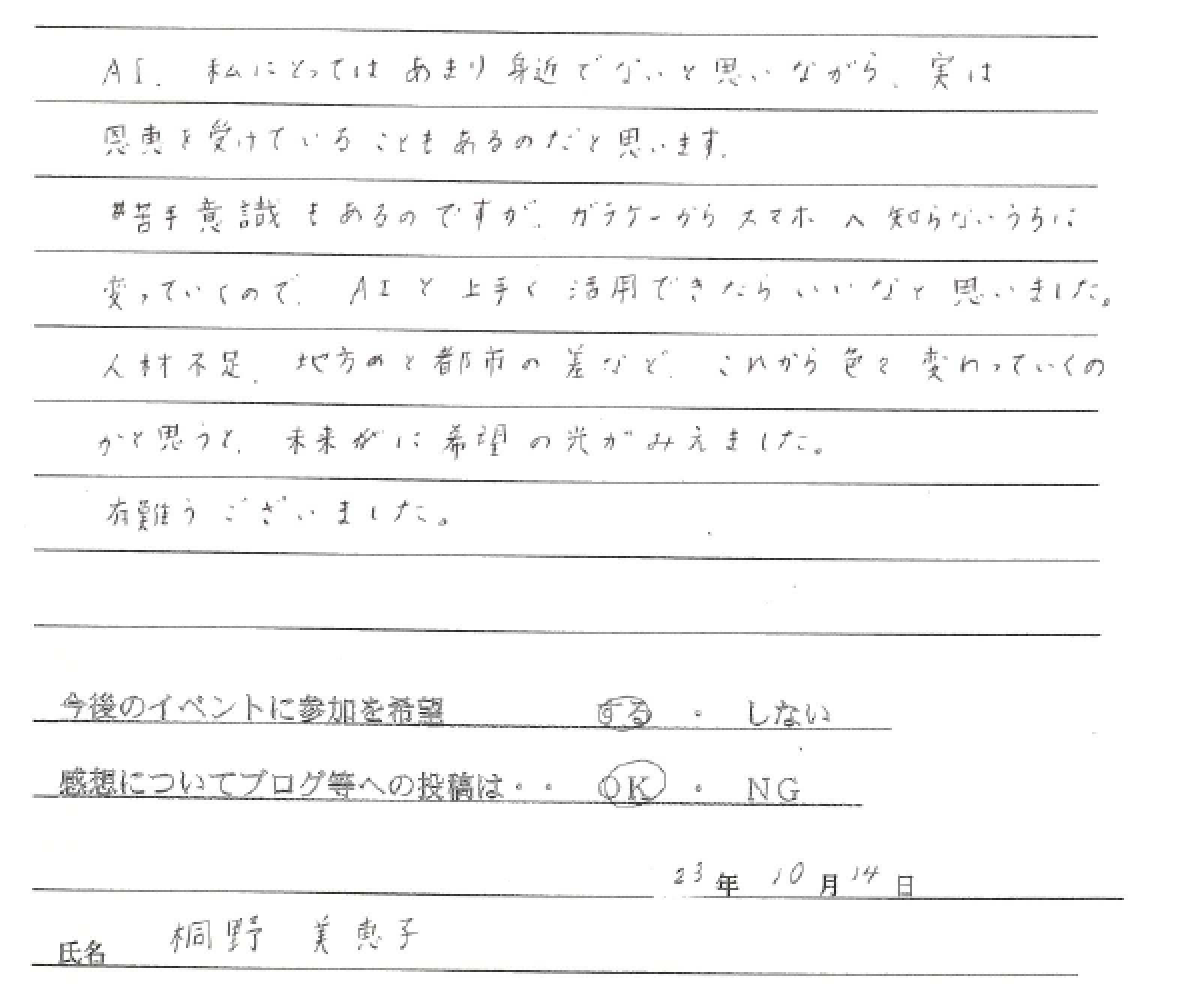 AI、私にとってはあまり身近でないと思いながら、実は
恩恵を受けていることもあるのだと思います。
苦手意識もあるのですが、ガラケーからスマホへ知らないうちに
変っていくので、AIと上手く活用できたらいいなと思いました。
人材不足、地方と都市の差など、これから色々変わっていくの
かと思うと、未来に希望の光がみえました。
有難うございました。
今後のイベントに参加を希望 する ・ しない
感想についてブログ等への投稿は・・ OK ・ NG
23年 10月14日
氏名 桐野 美恵子